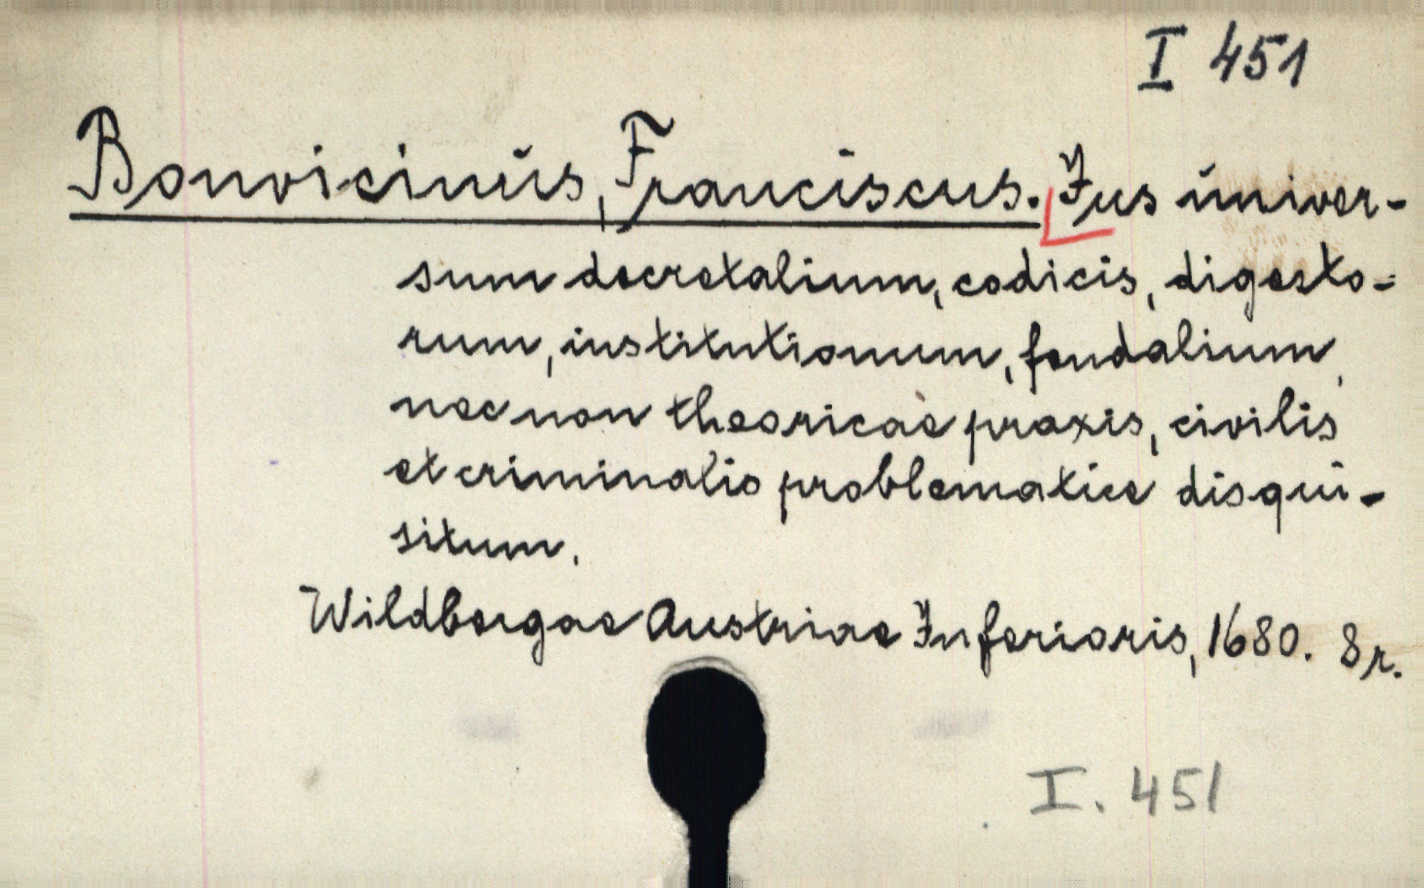 I 451
Bonvicinus, Franciscus. Jus univer-
sum decretalium, codicis, digesto-
rum, institutionum, feudalium,
nec non theoricae praxis, civilis
et criminalis problematice disqui-
situm.
Wildbergae Austriae Inferioris, 1680. 8r.
I. 451